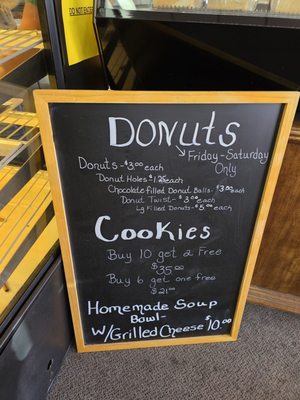 DO NOT ENTER
DONUTS
Friday-Saturday
Only
Donuts-$3.00 each
Donut Holes $1.25 each
Chocolate filled Donut Balls-$3.00 each
Donut Twist-$3.00 each
Lg Filled Donuts-$5.00 each
Cookies
Buy 10 get 2 Free
$35.00
Buy 6 get one free
$21.00
Homemade Soup
Bowl-
W/Grilled Cheese $10.00